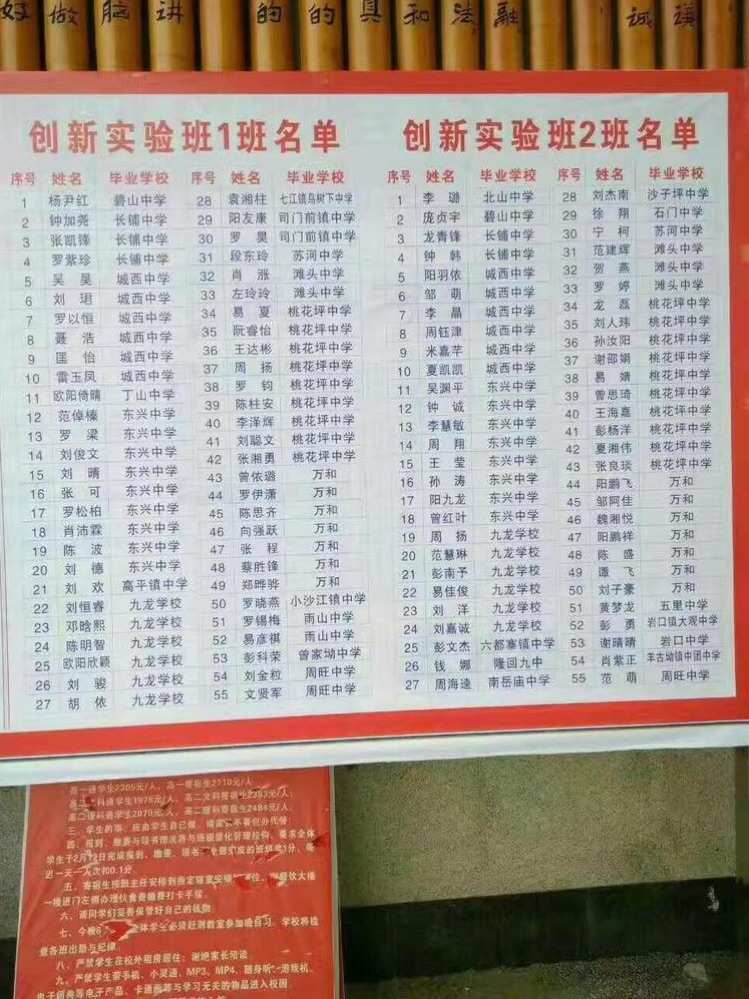 好做脑讲 的的具和法融 诚谨
创新实验班1班名单
序号 姓名 毕业学校 序号 姓名 毕业学校
1 杨尹红 碧山中学 28 袁湘柱 七江镇鸟树下中学
2 钟加尧 长铺中学 29 阳友康 司门前镇中学
3 张凯锋 长铺中学 30 罗昊 司门前镇中学
4 罗紫珍 长铺中学 31 段东玲 苏河中学
5 吴昊 城西中学 32 肖涨 滩头中学
6 刘珺 城西中学 33 左玲玲 滩头中学
7 罗以恒 城西中学 34 易夏 桃花坪中学
8 聂浩 城西中学 35 阮睿怡 桃花坪中学
9 匡怡 城西中学 36 王达彬 桃花坪中学
10 雷玉凤 城西中学 37 周扬 桃花坪中学
11 欧阳倚晴 丁山中学 38 罗钧 桃花坪中学
12 范倬榛 东兴中学 39 陈柱安 桃花坪中学
13 罗梁 东兴中学 40 李泽辉 桃花坪中学
14 刘俊文 东兴中学 41 刘聪文 桃花坪中学
15 刘晴 东兴中学 42 张湘勇 桃花坪中学
16 张可 东兴中学 43 曾依璐 万和
17 罗松柏 东兴中学 44 罗伊潇 万和
18 肖沛霖 东兴中学 45 陈思齐 万和
19 陈波 东兴中学 46 向强跃 万和
20 刘德 东兴中学 47 张程 万和
21 刘欢 高平镇中学 48 蔡胜锋 万和
22 刘恒睿 九龙学校 49 郑晔骅 万和
23 邓晗熙 九龙学校 50 罗晓燕 小沙江镇中学
24 陈明智 九龙学校 51 罗锡梅 雨山中学
25 欧阳欣颖 九龙学校 52 易彦祺 雨山中学
26 刘骏 九龙学校 53 彭科荣 曾家坳中学
27 胡依 九龙学校 54 刘金粒 周旺中学
55 文贤军 周旺中学
创新实验班2班名单
序号 姓名 毕业学校 序号 姓名 毕业学校
1 李璐 北山中学 28 刘杰南 沙子坪中学
2 庞贞宇 碧山中学 29 徐翔 石门中学
3 龙青锋 长铺中学 30 宁柯 苏河中学
4 钟韩 长铺中学 31 范建辉 滩头中学
5 阳羽依 城西中学 32 贺燕 滩头中学
6 邹萌 城西中学 33 罗婷 滩头中学
7 李晶 城西中学 34 龙磊 桃花坪中学
8 周钰津 城西中学 35 刘人玮 桃花坪中学
9 米嘉芊 城西中学 36 孙汝阳 桃花坪中学
10 夏凯凯 城西中学 37 谢邵娟 桃花坪中学
11 吴渊平 东兴中学 38 易婧 桃花坪中学
12 钟诚 东兴中学 39 曾思琦 桃花坪中学
13 李慧敏 东兴中学 40 王海嘉 桃花坪中学
14 周翔 东兴中学 41 彭杨洋 桃花坪中学
15 王莹 东兴中学 42 夏湘伟 桃花坪中学
16 孙涛 东兴中学 43 张良琰 桃花坪中学
17 阳九龙 东兴中学 44 阳鹏飞 万和
18 曾红叶 东兴中学 45 邹阿佳 万和
19 周扬 九龙学校 46 魏湘悦 万和
20 范慧琳 九龙学校 47 阳鹏祥 万和
21 彭南予 九龙学校 48 陈盛 万和
22 易佳俊 九龙学校 49 谭飞 万和
23 刘洋 九龙学校 50 刘子豪 万和
24 刘嘉诚 九龙学校 51 黄梦龙 五里中学
25 彭文杰 六都寨镇中学 52 彭勇 岩口镇大观中学
26 钱娜 隆回九中 53 谢晴晴 岩口中学
27 周海逵 南岳庙中学 54 肖紫正 羊古坳镇中团中学
55 范萌 周旺中学
高一通学生2305元/人，高一寄宿生2710元/人
三、学生的事，应由学生自己做
五、寄宿生按班主任安排到指定寝室安
一楼进门左侧办理伙食费缴费打卡手续。
六、请同学们妥善保管好自己的钱物
七、今晚 体学生必须赶到教室参加晚自习，学校将检
查各班出勤与纪律。
八、严禁学生在校外租房居住；谢绝家长陪读
九、严禁学生带手机、小灵通、MP3、MP4、随身听、游戏机、
电子词典等电子产品、卡通画等与学习无关的物品进入校园。